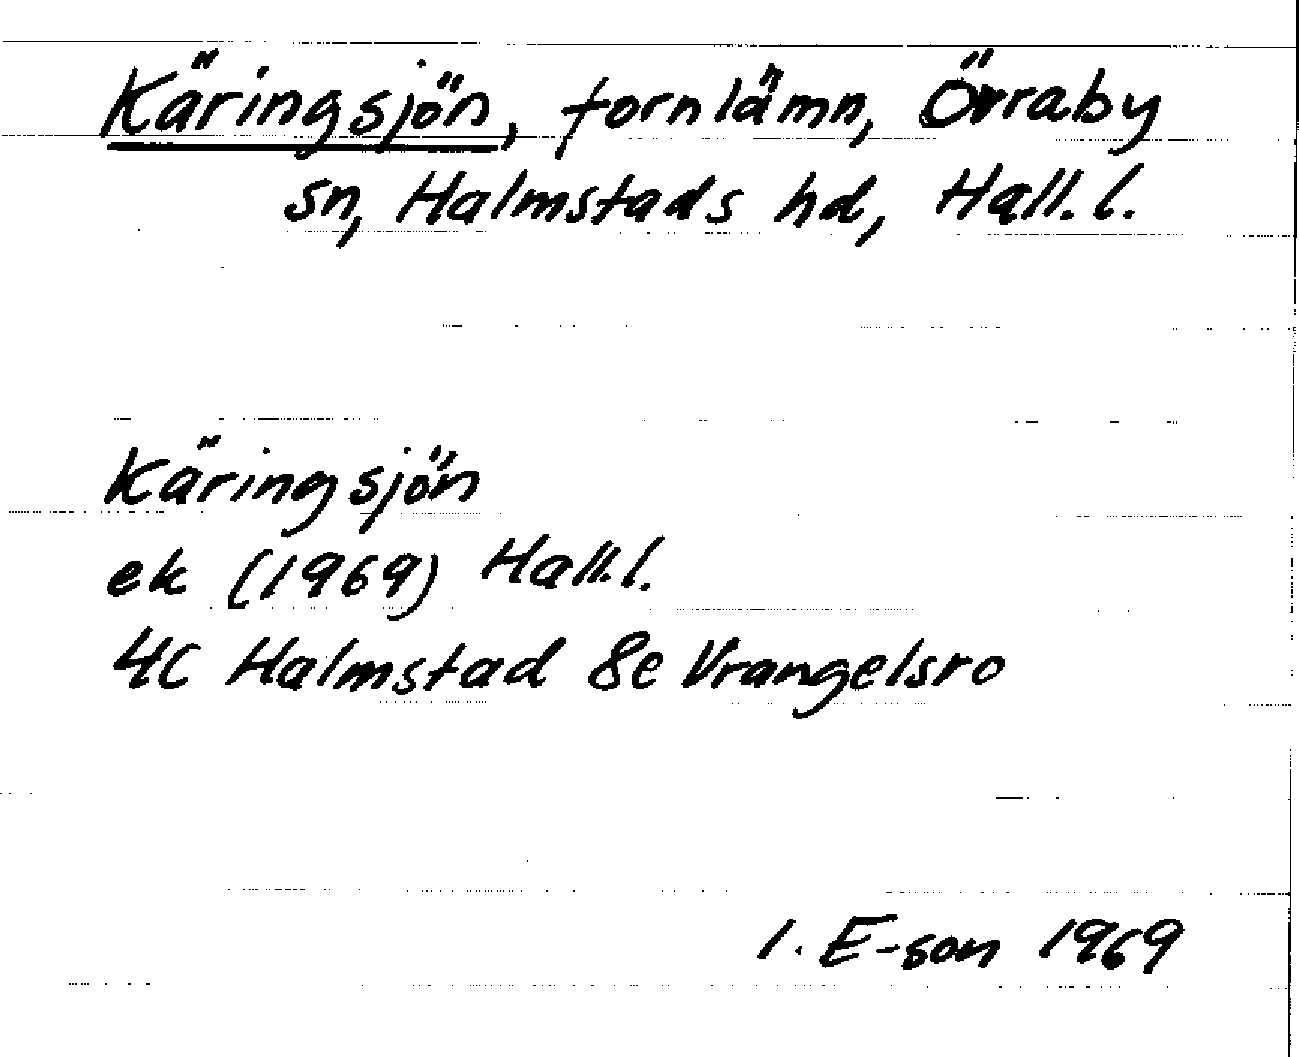 Käringsjön, fornlämn, Övraby
sn, Halmstads hd, Hall. l.
Käringsjön
ek (1969) Hall. l.
4C Halmstad 8e Vrangelsro
I. E-son 1969